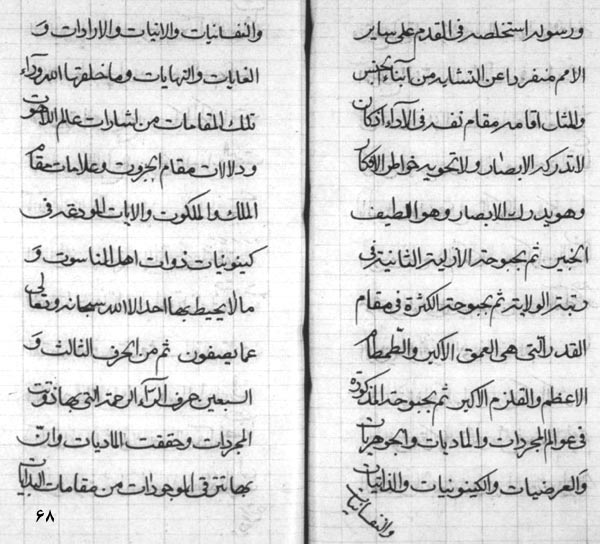 ورسوله استخلصه فی القدم علی سایر
الامم منفردا عن التشابه من ابناء الجنس
والمثل اقامه مقام نفسه فی الاداء اذ کان
لاتدرکه الابصار ولا تحویه خواطر الافکار
وهو یدرک الابصار وهو اللطیف
الخبیر ثم بحبوحة الازلیة الثانیة فی
رتبة الولایة ثم بحبوحة الکثرة فی مقام
القدر التی هی العمق الاکبر والطمطام
الاعظم والقلزم الاکبر ثم بحبوحة المذکورة
فی عوالم المجردات والمادیات والجوهریات
والعرضیات والکینونیات والذاتیات
والنفسانیات
والنفسانیات والانیات والارادات و
الغایات والنهایات وما خلقها الله وراء
تلک المقامات من اشارات عالم اللاهوت
ودلالات مقام الجبروت وعلامات مقام
الملک والملکوت والایات المودعة فی
کینونیات ذوات اهل الناسوت و
مالا یحیط بها احد الا الله سبحانه وتعالی
عما یصفون ثم من الحرف الثالث و
السبعین حرف الراء الرحمة التی بها ذوتت
المجردات وحققت المادیات وان
بها تترقی الموجودات من مقامات البدایات
۶۸